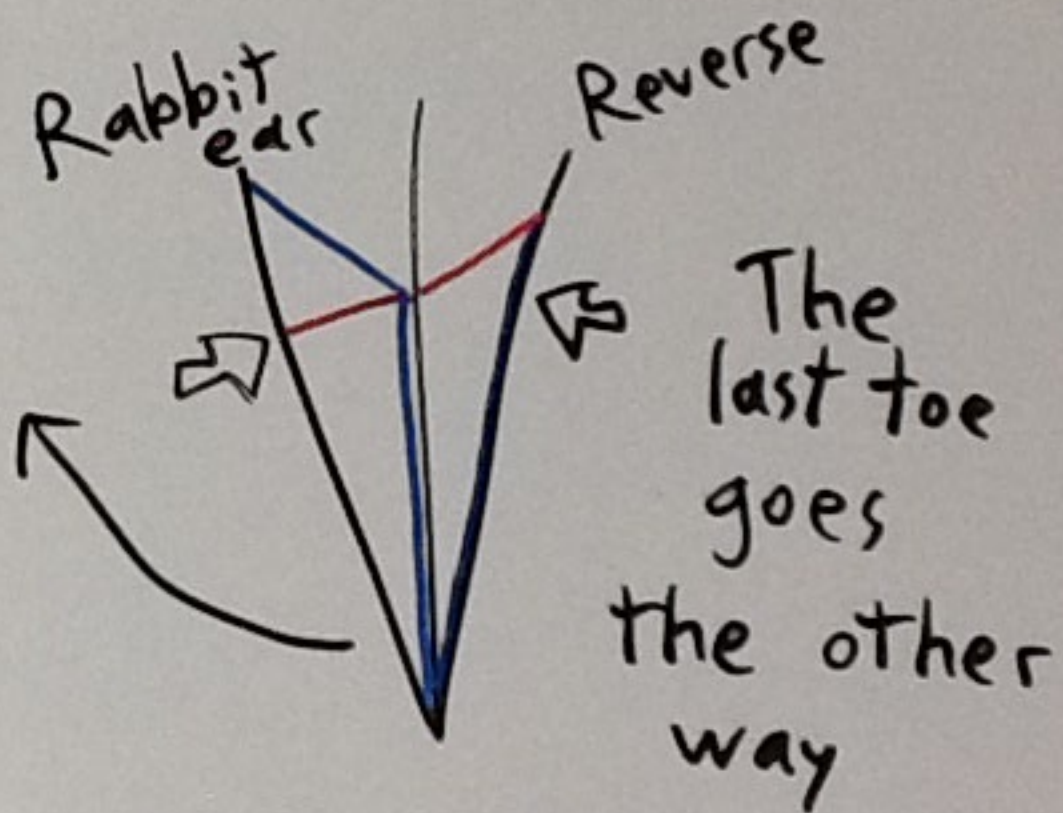 Rabbit
ear
Reverse
The
last toe
goes
the other
way